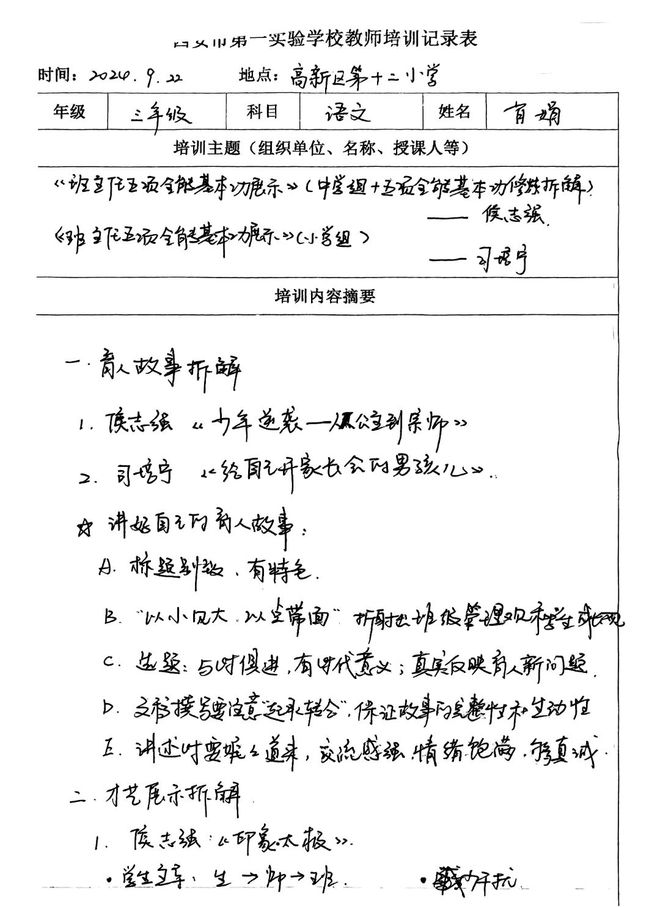 西安市第一实验学校教师培训记录表
时间：2024.9.22 地点：高新区第十二小学
年级 三年级 科目 语文 姓名 肖娟
培训主题（组织单位、名称、授课人等）
《班主任五项全能基本功展示》（中学组+五项全能基本功修炼拆解）
—— 侯志强
《班主任五项全能基本功展示》（小学组）
—— 司培宁
培训内容摘要
一.育人故事拆解
1. 侯志强 《少年逆袭—从公主到 师》
2. 司培宁 《给自己开家长会的男孩儿》.
☆ 讲好自己的育人故事：
A. 标题别致、有特色.
B. “以小见大、以点带面” 折射出班级管理观和学生成长观
C. 选题：与时俱进，有时代意义；真实反映育人新问题.
D. 文稿撰写要注意“起承转合”，保证故事的完整性和生动性
E. 讲述时要娓娓道来，交流感强，情绪饱满，够真诚.
二.才艺展示拆解
1. 侯志强：《印象太极》.
• 学生主导：生→师→班. • 减少干扰